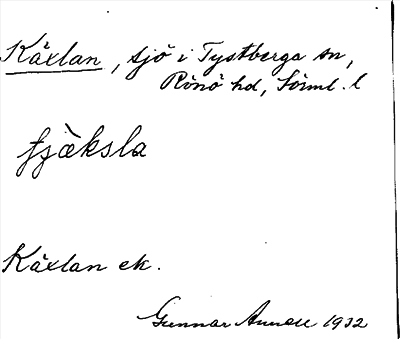 Käxlan, sjö i Tystberga sn,
Rönö hd, Söiml. l
fjä̀ksla
Käxlan ek.
Gunnar 1932